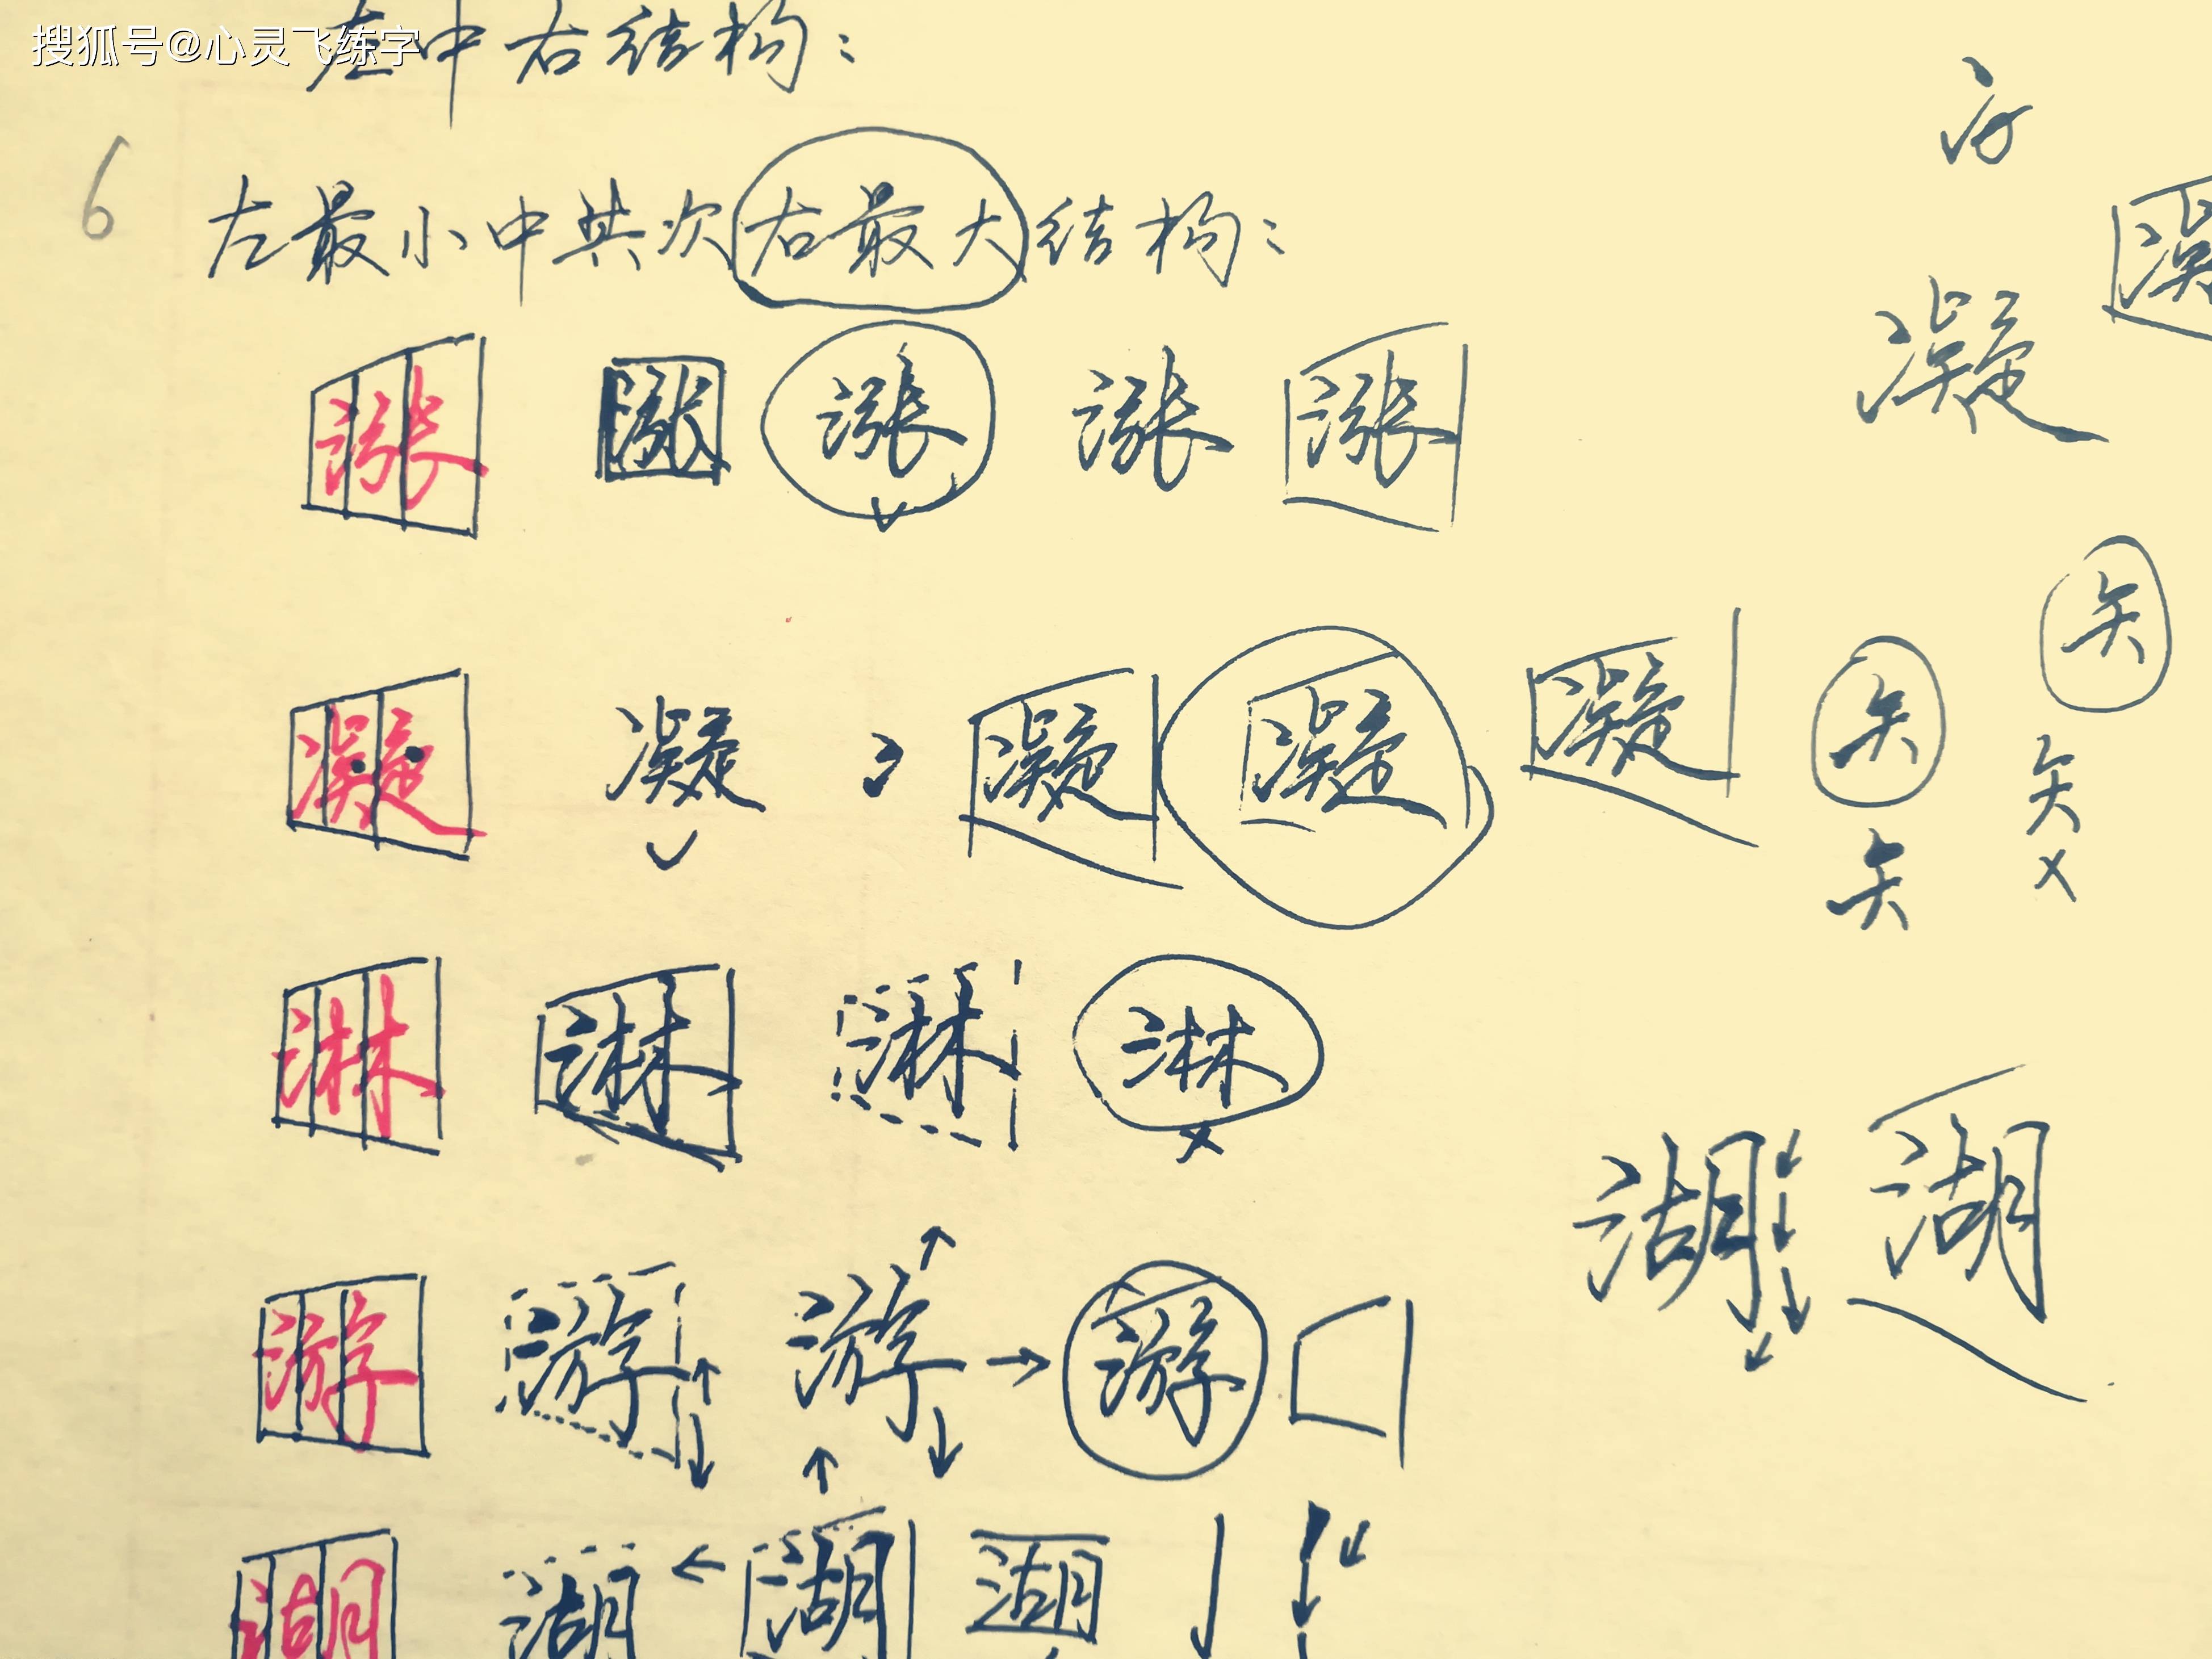 搜狐号@心灵飞练字
左中右结构：
6 左最小中其次右最大结构：
涨 涨 涨 涨 涨
凝
凝 凝 凝 凝 凝
淋 淋 淋 淋
游 游 游 游
湖 湖
湖 湖 湖 湖